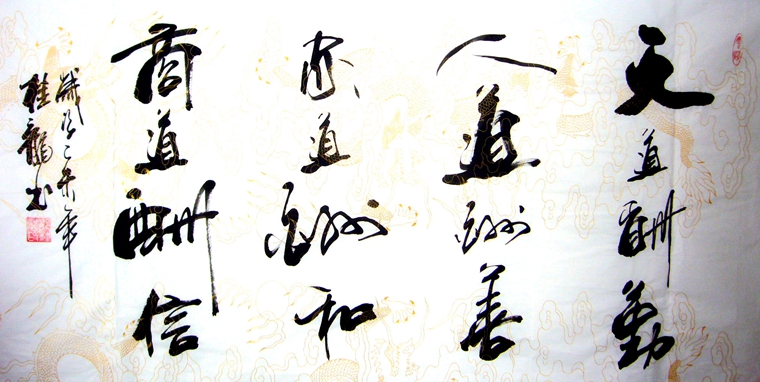 天道酬勤
人道酬善
家道酬和
商道酬信
乙未年
龍书